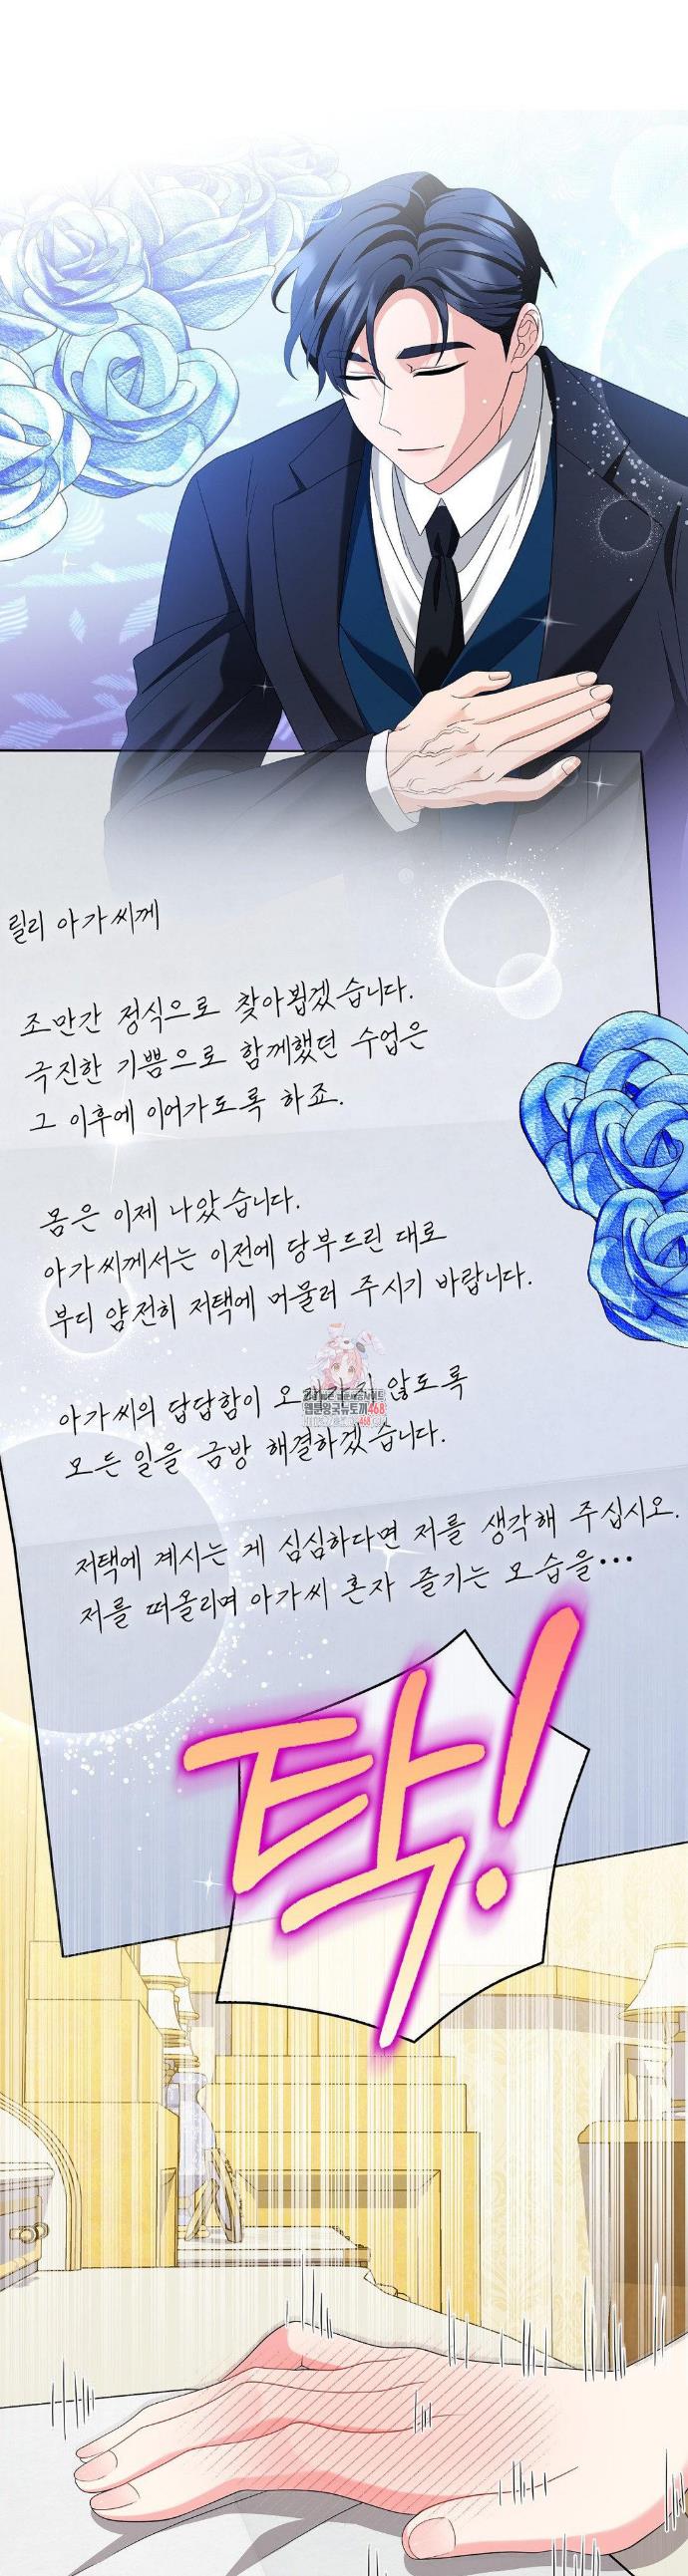 릴리 아가씨께
조만간 정식으로 찾아뵙겠습니다.
극진한 기쁨으로 함께했던 수업은
그 이후에 이어가도록 하죠.
몸은 이제 나았습니다.
아가씨께서는 이전에 당부드린 대로
부디 얌전히 저택에 머물러 주시기 바랍니다.
아가씨의 답답함이 오래가지 않도록
모든 일을 금방 해결하겠습니다.
웹툰왕국뉴토끼468
저택에 계시는 게 심심하다면 저를 생각해 주십시오.
저를 떠올리며 아가씨 혼자 즐기는 모습을…
탁!